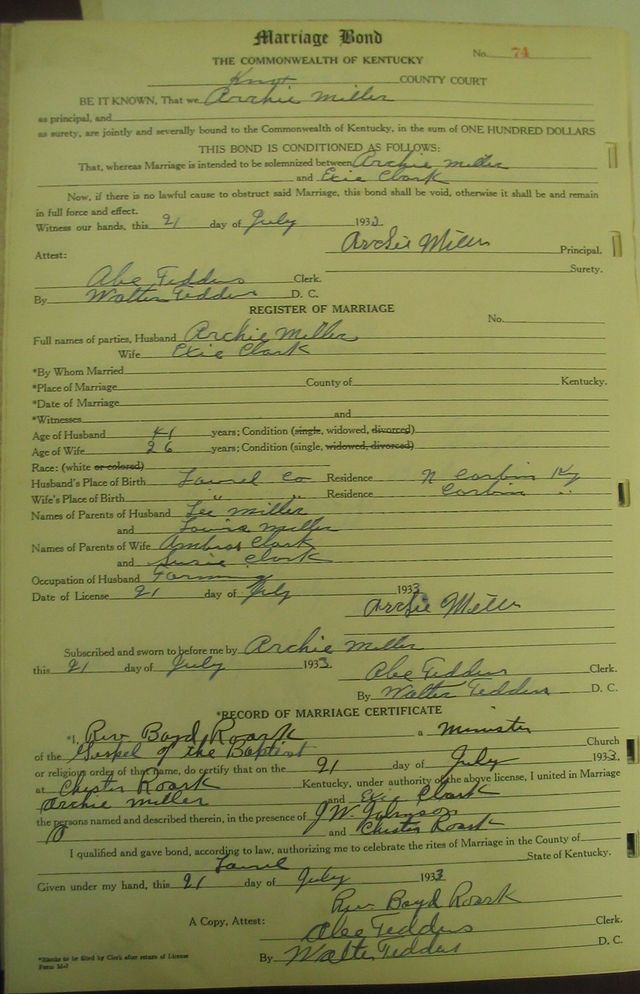 Marriage Bond
No. 74
THE COMMONWEALTH OF KENTUCKY
Knox COUNTY COURT
BE IT KNOWN, That we Archie Miller
as principal, and
as surety, are jointly and severally bound to the Commonwealth of Kentucky, in the sum of ONE HUNDRED DOLLARS
THIS BOND IS CONDITIONED AS FOLLOWS:
That, whereas Marriage is intended to be solemnized between Archie Miller
and Exie Clark
Now, if there is no lawful cause to obstruct said Marriage, this bond shall be void, otherwise it shall be and remain
in full force and effect.
Witness our hands, this 21 day of July 1933
Archie Miller Principal.
Attest:
Surety.
Abe Tedders Clerk.
By Walter Tedders D. C.
REGISTER OF MARRIAGE
No.
Full names of parties, Husband Archie Miller
Wife Exie Clark
*By Whom Married
*Place of Marriage County of Kentucky.
*Date of Marriage
*Witnesses and
Age of Husband 41 years; Condition (single, widowed, divorced)
Age of Wife 26 years; Condition (single, widowed, divorced)
Race: (white or colored)
Husband's Place of Birth Laurel Co Residence N Corbin Ky
Wife's Place of Birth " " Residence Corbin "
Names of Parents of Husband Lee Miller
and Louisa Miller
Names of Parents of Wife Ambros Clark
and Susie Clark
Occupation of Husband Farming
Date of License 21 day of July 1933
Archie Miller
Subscribed and sworn to before me by Archie Miller
this 21 day of July 1933
Abe Tedders Clerk.
By Walter Tedders D. C.
*RECORD OF MARRIAGE CERTIFICATE
*I, Rev Boyd Roark a Minister
of the Gospel of the Baptist Church
or religious order of that name, do certify that on the 21 day of July 1933.
at Chester Roark Kentucky, under authority of the above license, I united in Marriage
Archie Miller and Exie Clark
the persons named and described therein, in the presence of J.W. Johnson
and Chester Roark
I qualified and gave bond, according to law, authorizing me to celebrate the rites of Marriage in the County of
Laurel State of Kentucky.
Given under my hand, this 21 day of July 1933
Rev. Boyd Roark
A Copy, Attest: Abe Tedders Clerk.
By Walter Tedders D. C.
*Blanks to be filled by Clerk after return of License
Form M-7